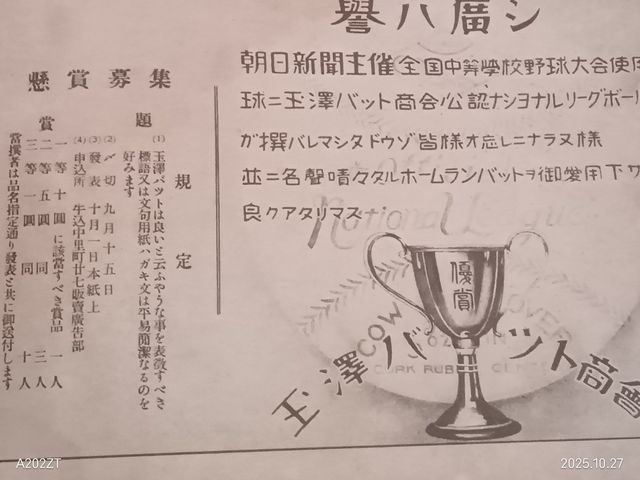 譽ハ廣シ
朝日新聞主催全国中等學校野球大会使用
球ニ玉澤バット商会公認ナショナルリーグボール
ガ撰バレマシタドウゾ皆様オ忘レニナラヌ様
並ニ名聲嘖々タルホームランバットヲ御愛用下サ
良クアタリマス
National League
優賞
COW
OVER
CORK RUBBER CENTER
玉澤バット商會
懸賞募集
題
規定
(1) 玉澤バットは良いと云ふやうな事を表徴すべき
標語又は文句用紙ハガキ文は平易簡潔なるのを
好みます
(2) 〆切 九月十五日
(3) 發表 十月一日本紙上
(4) 申込所 牛込中里町廿七販賣廣告部
賞
一等 十圓 に該當すべき賞品 一人
二等 五圓 同 三人
三等 一圓 同 十人
當撰者は品名指定通り發表と共に御送付します
A202ZT
2025.10.27